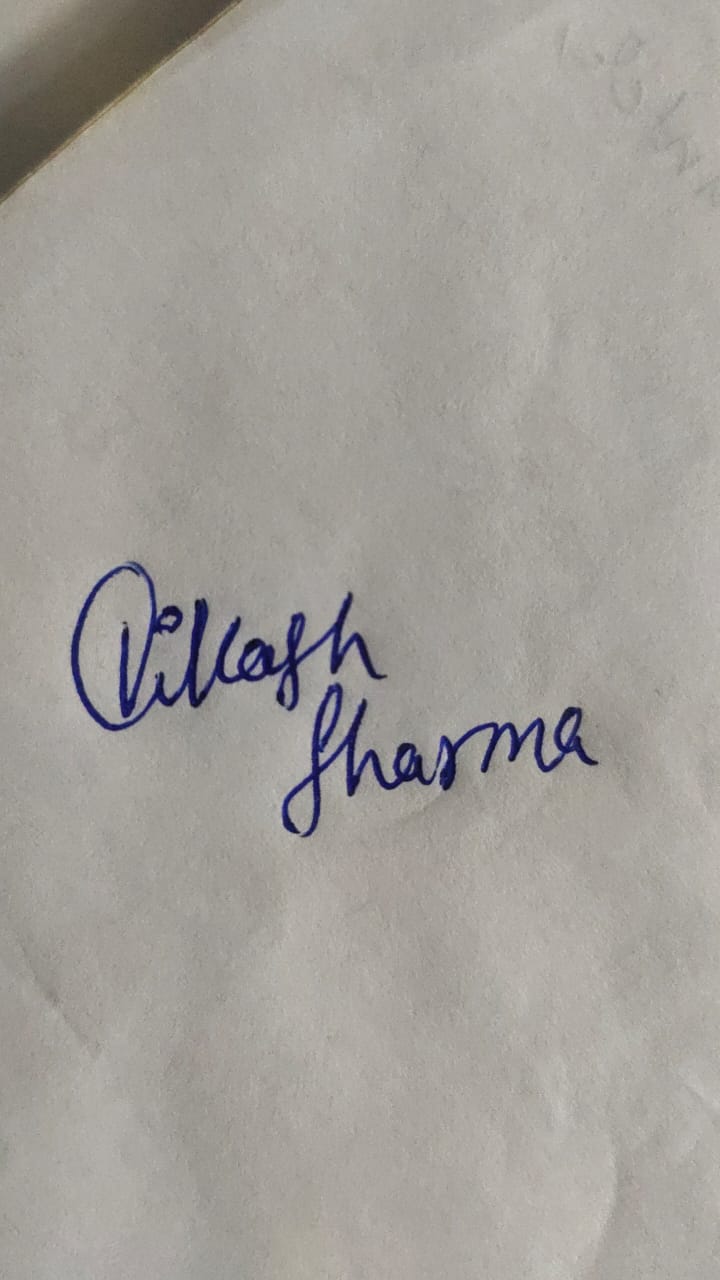 Vikash
Sharma